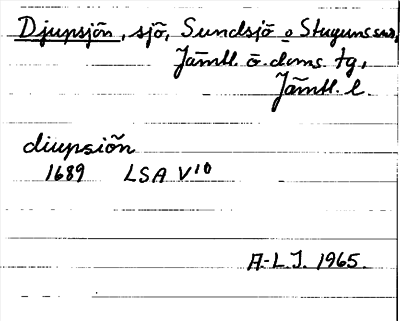 Djupsjön, sjö, Sundsjö o Stuguns snr,
Jämtl. ö. doms. tg,
Jämtl. l.
diupsiön
1689 LSA V10
A.-L.J. 1965.